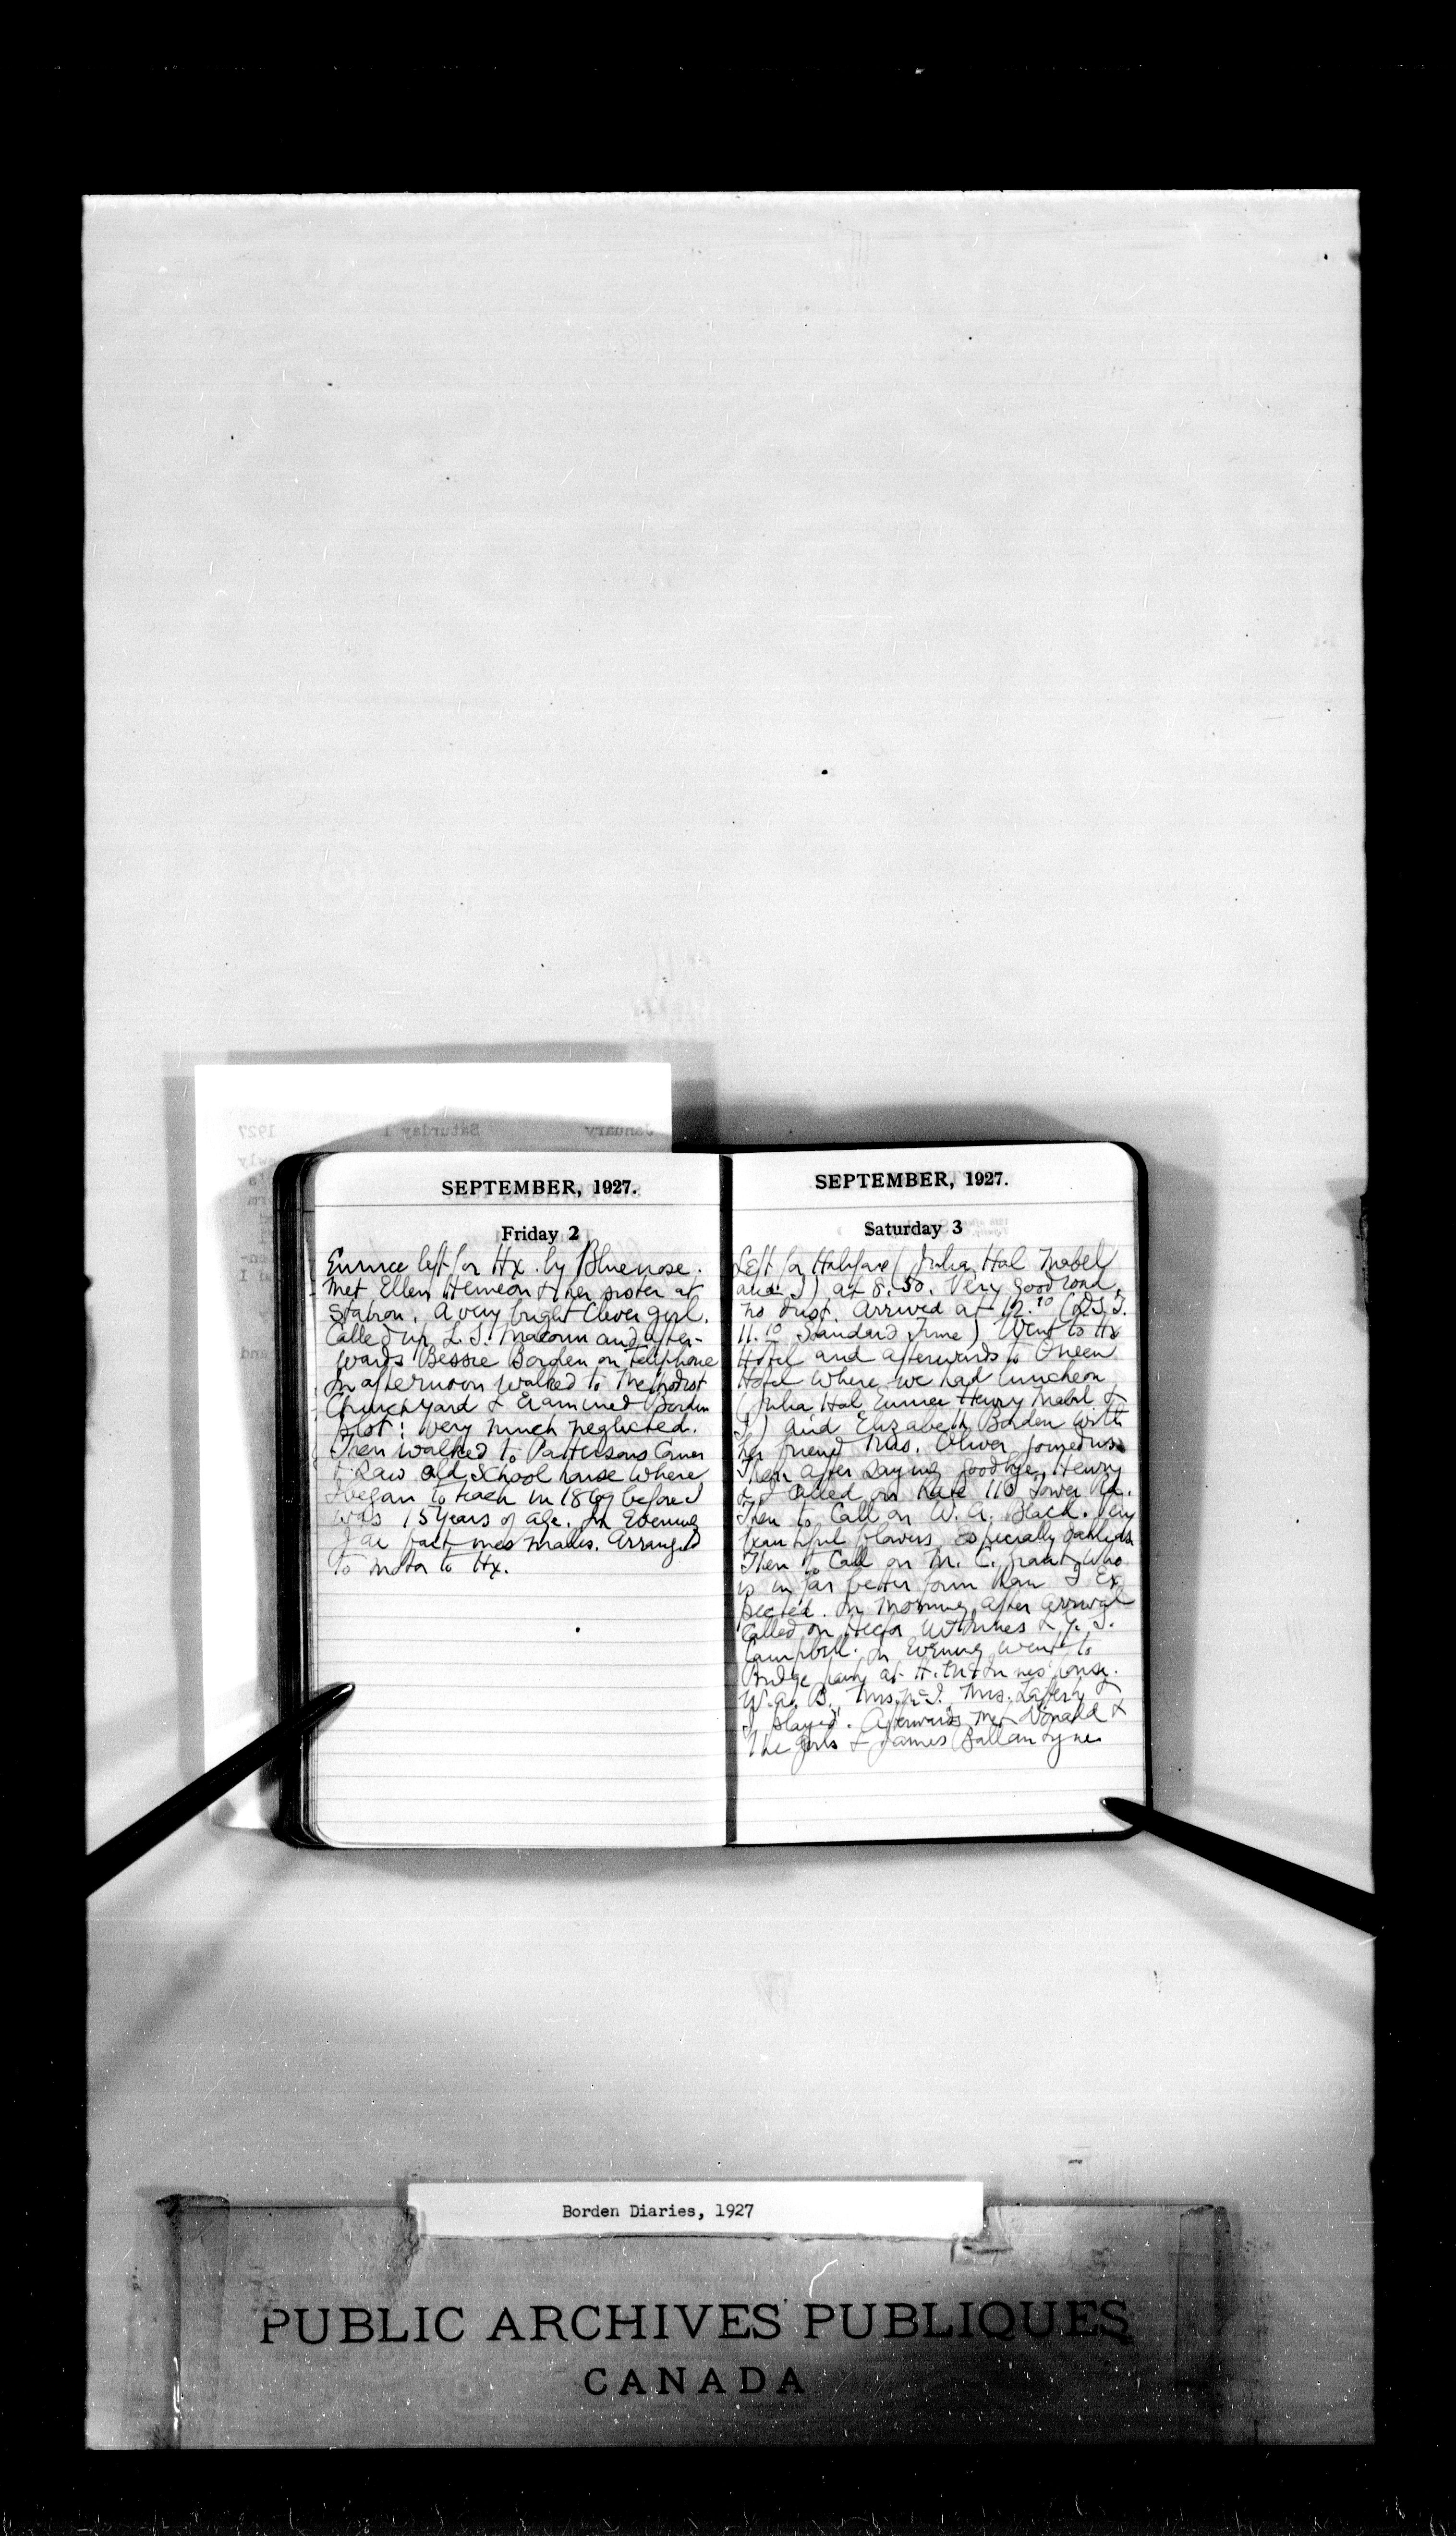 SEPTEMBER, 1927.
Friday 2
Eunice left for Hx. by Bluenose.
Met Ellen Hemeon & her sister at
Station. A very bright clever girl.
Called up L. S. Macoun and after-
wards Bessie Borden on telephone
In afternoon walked to Methodist
Churchyard & Examined Borden
plot; very much neglected.
Then walked to Pattersons Corner
& saw old School house where
I began to teach in 1869 before I
was 15 years of age. In Evening
Arranged
to motor to Hx.
SEPTEMBER, 1927.
Saturday 3
Left for Halifax (Julia, Hal Mabel
and I) at 8.50. Very good road,
no dust. Arrived at 12.10 (D.S.T.
11.10 Standard Time) Went to Hx
Hotel and afterwards to Queen
Hotel where we had luncheon
(Julia Hal Eunice Henry Mabel &
I) and Elizabeth Borden with
her friend Mrs. Oliver joined us.
Then after saying goodbye, Henry
& I called on Kate 110 Tower Rd.
Then to Call on W. A. Black. Very
beautiful flowers, especially dahlias
Then to Call on M. C. Grant who
is in far better form than I Ex-
pected. In morning after arrival
Called on Hector McInnes & G. S.
Campbell. In Evening went to
Bridge party at H. McInnes' house.
W. A. B., Mrs. McI. Mrs. &
I played. Afterwards met Donald &
the girls & James Ballantyne
January Saturday 1 1927
Borden Diaries, 1927
PUBLIC ARCHIVES PUBLIQUES
CANADA